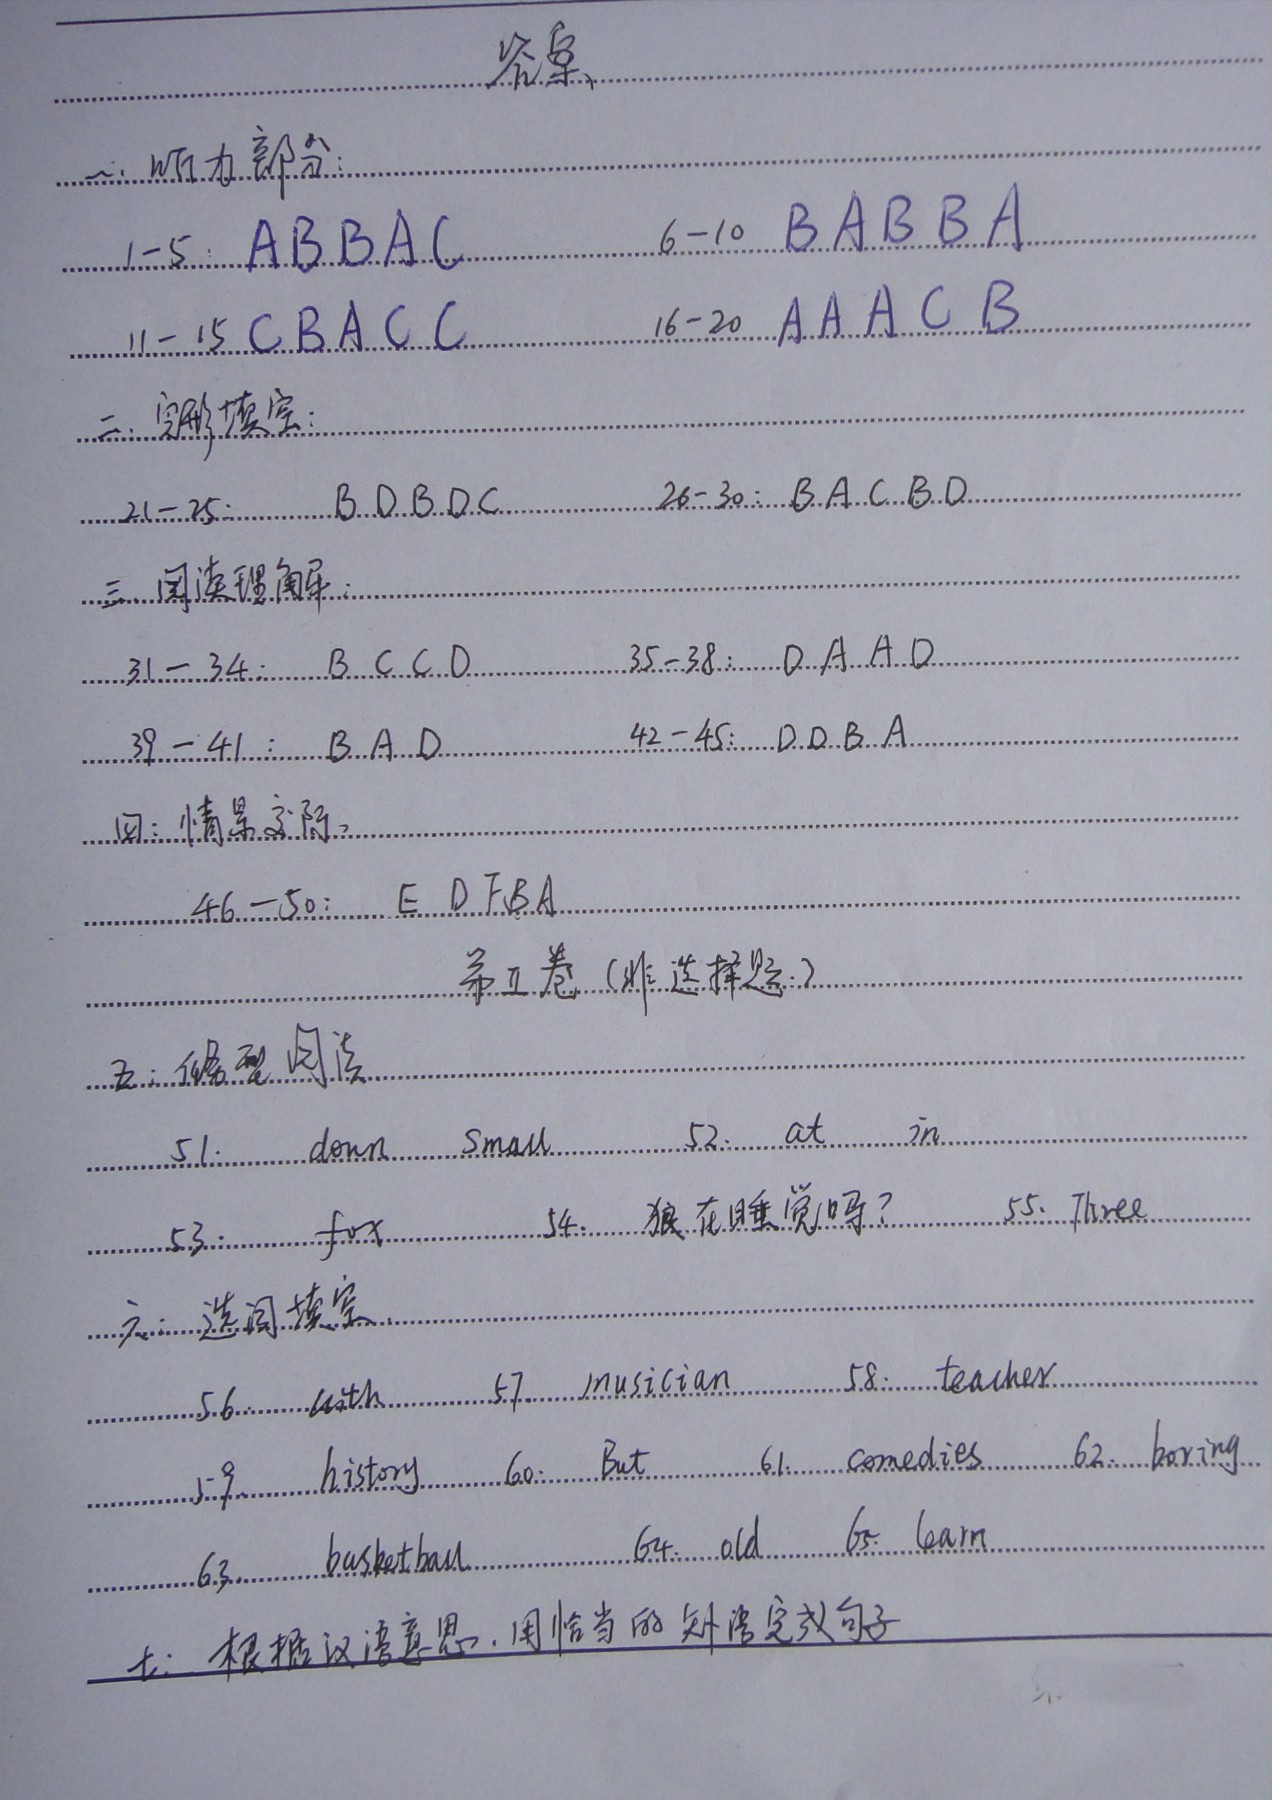 答案
一：听力部分：
1-5: ABBAC 6-10 BABBA
11-15 CBACC 16-20 AAACB
二、完形填空：
21-25: BDBDC 26-30: BACBD
三、阅读理解：
31-34: BCCD 35-38: DAAD
39-41: BAD 42-45: DDBA
四：情景交际、
46-50: EDFBA
第II卷（非选择题）
五：任务型阅读
51. down small 52. at in
53. fox 54. 狼在睡觉吗？ 55. Three
六：选词填空
56. with 57. musician 58. teacher
59. history 60. But 61. comedies 62. boring
63. basketball 64. old 65. learn
七：根据汉语意思，用恰当的短语完成句子